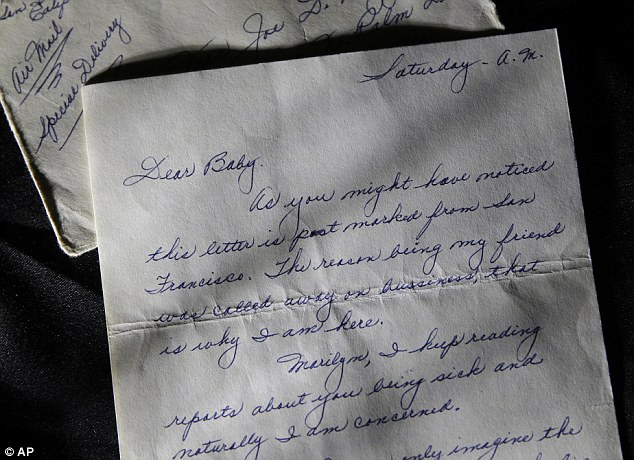 San F
Calif
Air Mail
Special Delivery
Joe D.
Palm
Saturday - A.M.
Dear Baby.
As you might have noticed
this letter is post marked from San
Francisco. The reason being my friend
was called away on bussiness, that
is why I am here.
Marilyn, I keep reading
reports about you being sick and
naturally I am concerned.
only imagine the
© AP